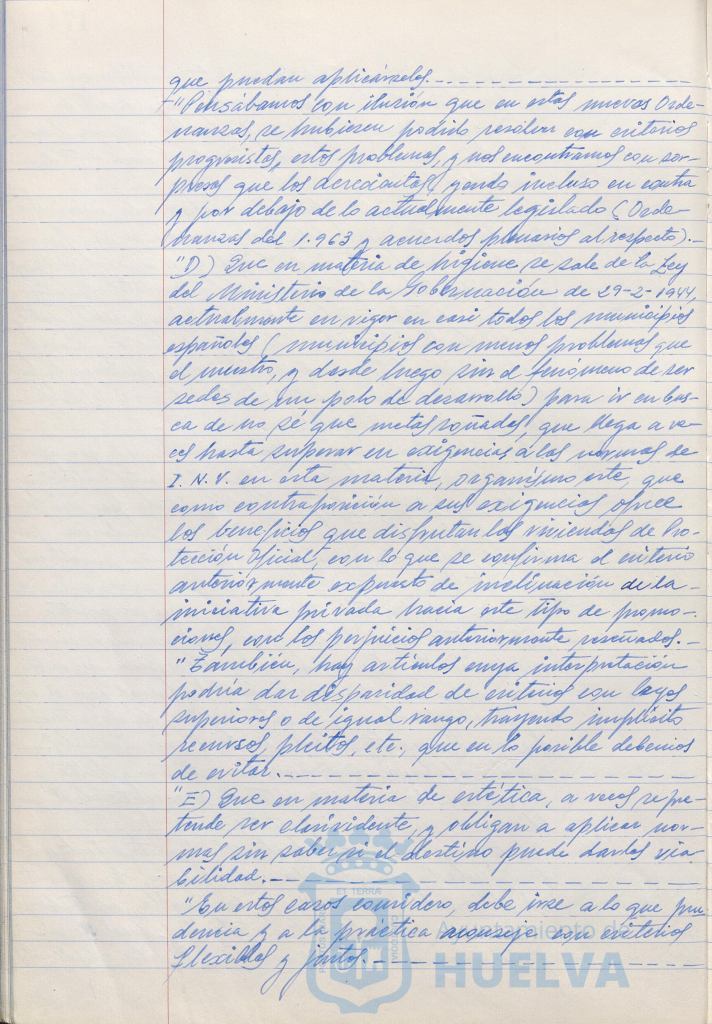 que puedan aplicárseles.
"Pensábamos con ilusión que en estas nuevas Orde-
nanzas, se hubiesen podido resolver con criterios
progresistas, estos problemas, y nos encontramos con sor-
presas que los acrecientan, yendo incluso en contra
y por debajo de lo actualmente legislado (Orde-
nanzas del 1.963 y acuerdos plenarios al respecto).-
"D) Que en materia de higiene se sale de la Ley
del Ministerio de la Gobernación de 29-2-1944,
actualmente en vigor en casi todos los municipios
españoles (municipios con menos problemas que
el nuestro, y desde luego sin el fenómeno de ser
sedes de un polo de desarrollo) para ir en bus-
ca de no sé que metas soñadas, que llega a ve-
ces hasta superar en exigencias a las normas de
I.N.V. en esta materia, organismo este, que
como contraposición a sus exigencias ofrece
los beneficios que disfrutan las viviendas de Pro-
tección Oficial, con lo que se confirma el criterio
anteriormente expuesto de inclinación de la
iniciativa privada hacia este tipo de promo-
ciones, con los perjuicios anteriormente reseñados.-
"También, hay artículos cuya interpretación
podría dar disparidad de criterios con leyes
superiores o de igual rango, trayendo implícito
recursos, pleitos, etc., que en lo posible debemos
de evitar.
"E) Que en materia de estética, a veces se pre-
tende ser clarividente, y obligan a aplicar nor-
mas sin saber si el destino puede darles via-
bilidad.
"En estos casos considero, debe irse a lo que pru-
dencia y a la práctica aconseje con criterios
flexibles y justos.
ET TERRAE
Ayuntamiento de
HUELVA